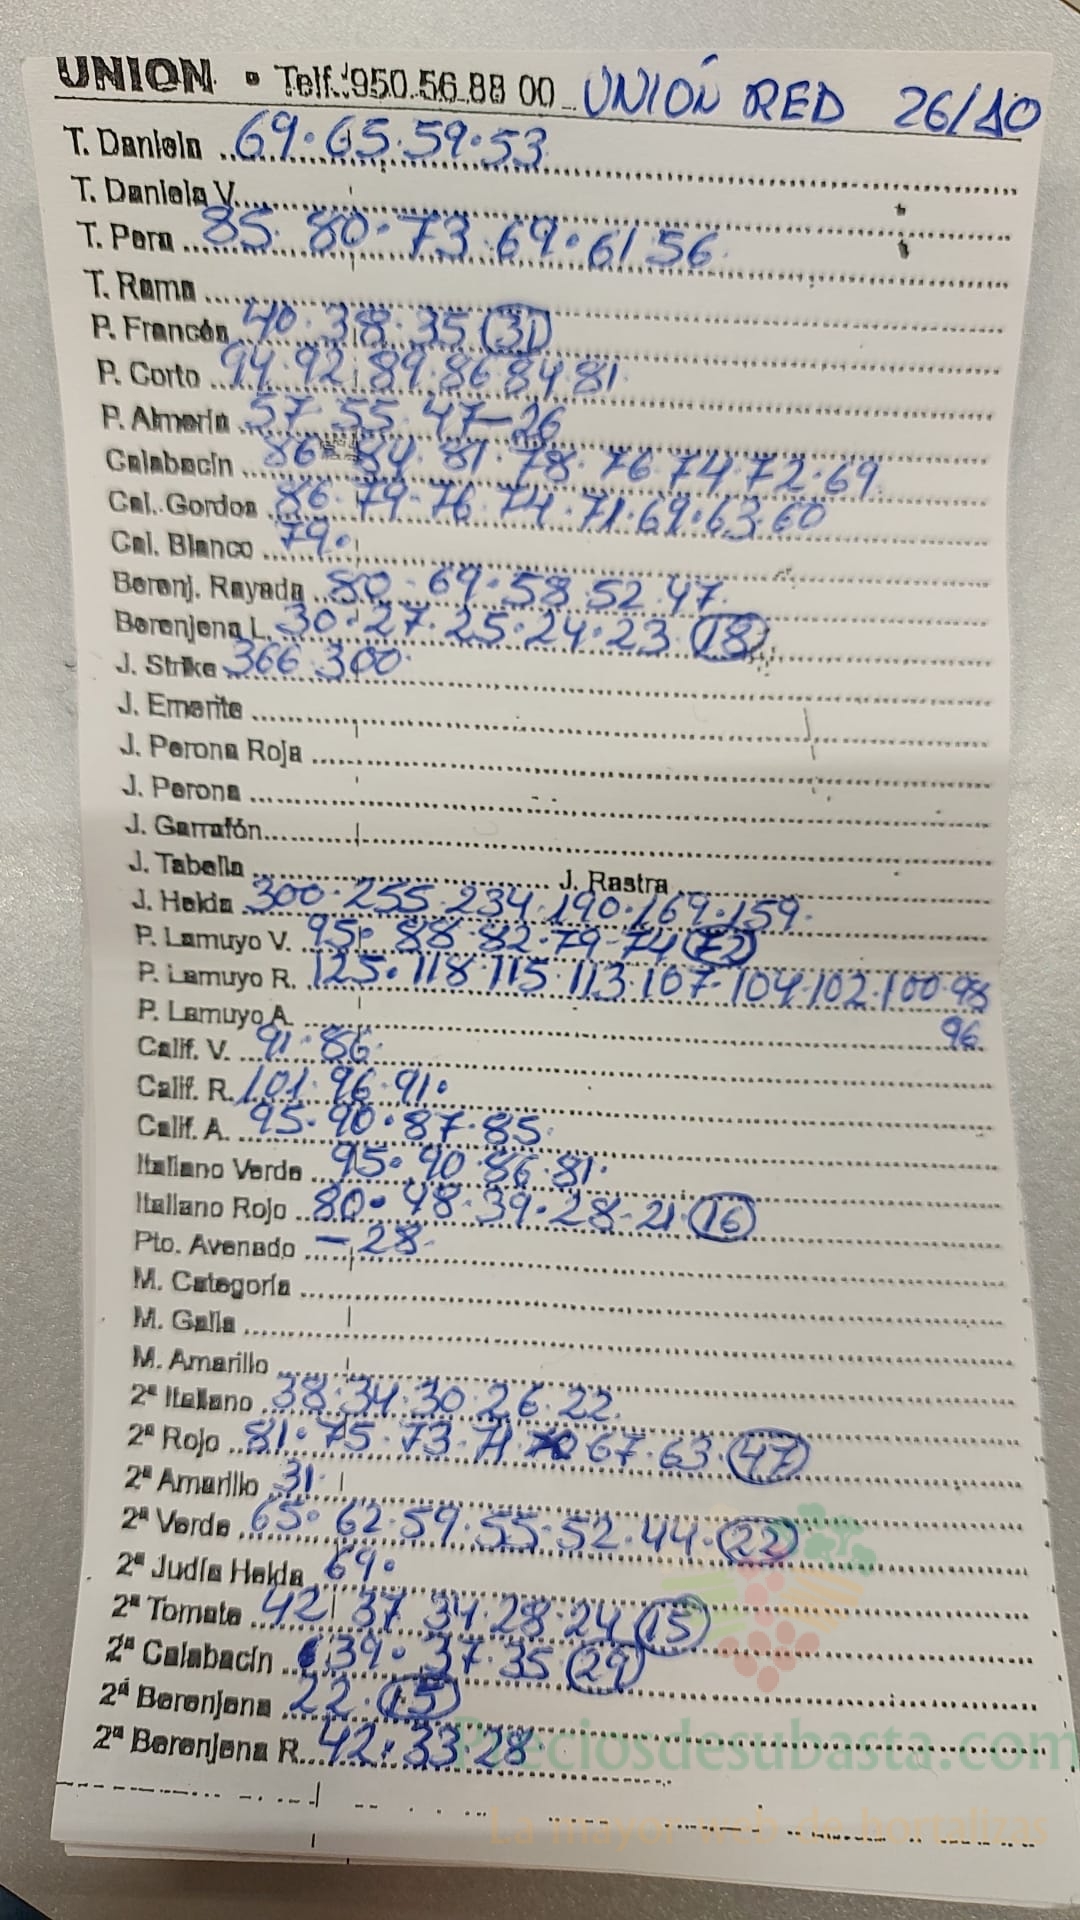 UNION • Telf.: 950.56.88 00 UNIÓN RED 26/10
T. Daniela 69·65·59·53
T. Daniela V.
T. Pera 85·80·73·69·61 56
T. Rama
P. Francés 40·38·35 (31)
P. Corto 94·92·89·86 84 81
P. Almería 57 55·47-26
Calabacín 86·84·81·78·76 74·72·69
Cal. Gordos 86·79-76·74·71·69·63·60
Cal. Blanco 79·
Berenj. Rayada 80·69·58·52·47
Berenjena L. 30·27·25·24·23·(18)
J. Strike 366 300
J. Emerite
J. Perona Roja
J. Perona
J. Garrafón
J. Tabella J. Rastra
J. Helda 300·255·234·190·169·159
P. Lamuyo V. 95·88·82·79-74 (72)
P. Lamuyo R. 125·118·115·113·107-104·102·100·98
P. Lamuyo A. 96
Calif. V. 91·86
Calif. R. 101·96·91·
Calif. A. 95·90·87·85
Italiano Verde 95·90·86·81·
Italiano Rojo 80·48·39·28-21·(16)
Pto. Avenado -28
M. Categoría
M. Galia
M. Amarillo
2ª Italiano 38·34·30·26·22
2ª Rojo 81·75·73·71 70 67·63·(47)
2ª Amarillo 31
2ª Verde 65·62·59·55·52·44·(22)
2ª Judía Helda 69·
2ª Tomate 42 37 34·28·24 (15)
2ª Calabacín 39·37·35 (29)
2ª Berenjena 22·(15)
2ª Berenjena R. 42·33·28
Preciosdesubasta.com
La mayor web de hortalizas